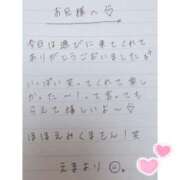 お兄様へ♡
今日は遊びに来てくれて
ありがとうございましたが
いっぱい笑ってくれて楽し
かった〜！って言っても
らえて嬉しいよ〜♡
ほほえみくまさん！笑
えまより☺